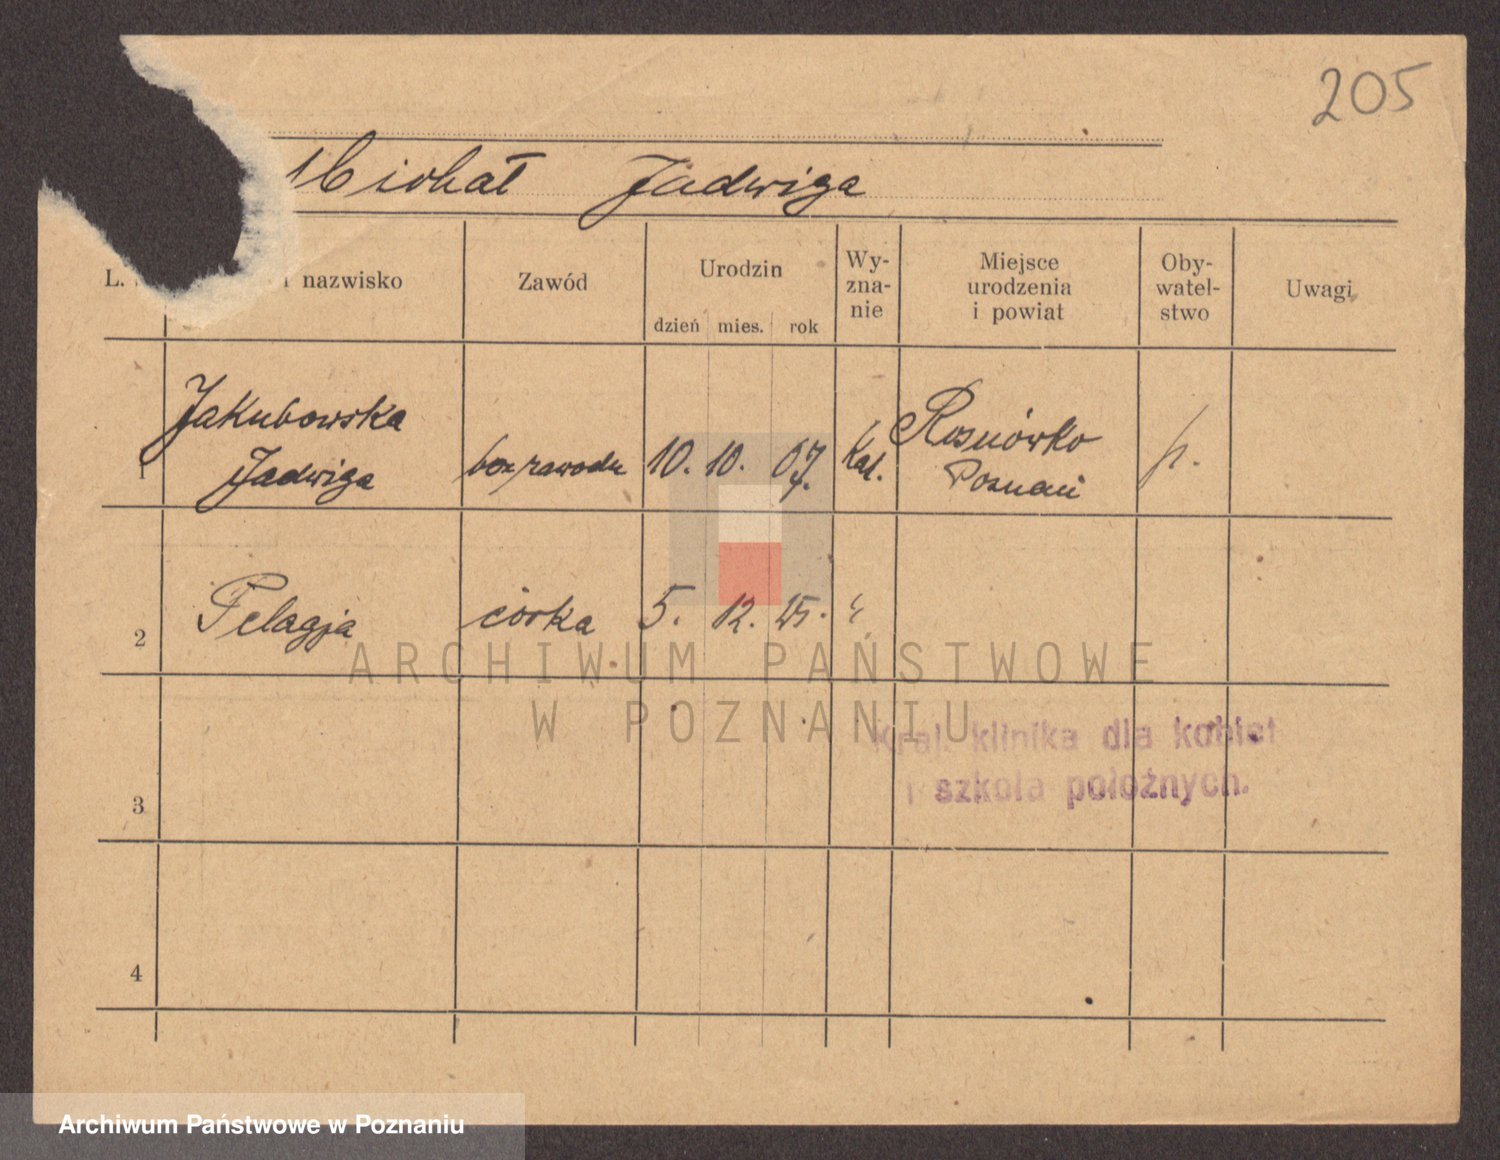 205
Michał Jadwiga
L. nazwisko Zawód Urodzin dzień mies. rok Wy-zna-nie Miejsce urodzenia i powiat Oby-watel-stwo Uwagi
1 Jakubowska Jadwiga bez zawodu 10. 10. 07. Kat. Rosnówko Poznań p.
2 Pelagja córka 5. 12. 25. "
ARCHIWUM PAŃSTWOWE
W POZNANIU
Kraj. klinika dla kobiet
i szkoła położnych.
3
4
Archiwum Państwowe w Poznaniu